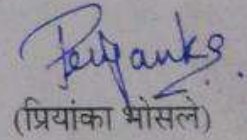 Priyanka
(प्रियांका भोसले)